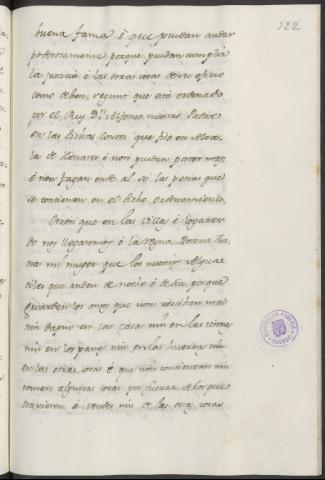 322
buena fama è que puedan andar
poderosamente porque puedan complir
la justicia è las otras cosas de su oficio
como deben, segunt que está ordenado
por el Rey Dn. Alfonso, nuestro Padre
en las dichas Cortes que fizo en Alca
la de Henares è non puedan poner mas
è non fagan ende al só las penas que
se contienen en el dicho ordenamiento.
Otrosi que en las villas è logares
do nos llegaremos è la Reyna Doña Jua
na mi muger que los nuestros Algua
ciles que anden de noche è de dia porque
guarden los omes que non reciban mal
nin daño en las casas nin en las viñas
nin en los panes nin en las huertas nin
en las otras cosas è que non consientan nin
tomen algunas cosas por fuerza de los que
traxieren à vender nin de las otras cosas
BIBLIOTECA PUBLICA
TOLEDO